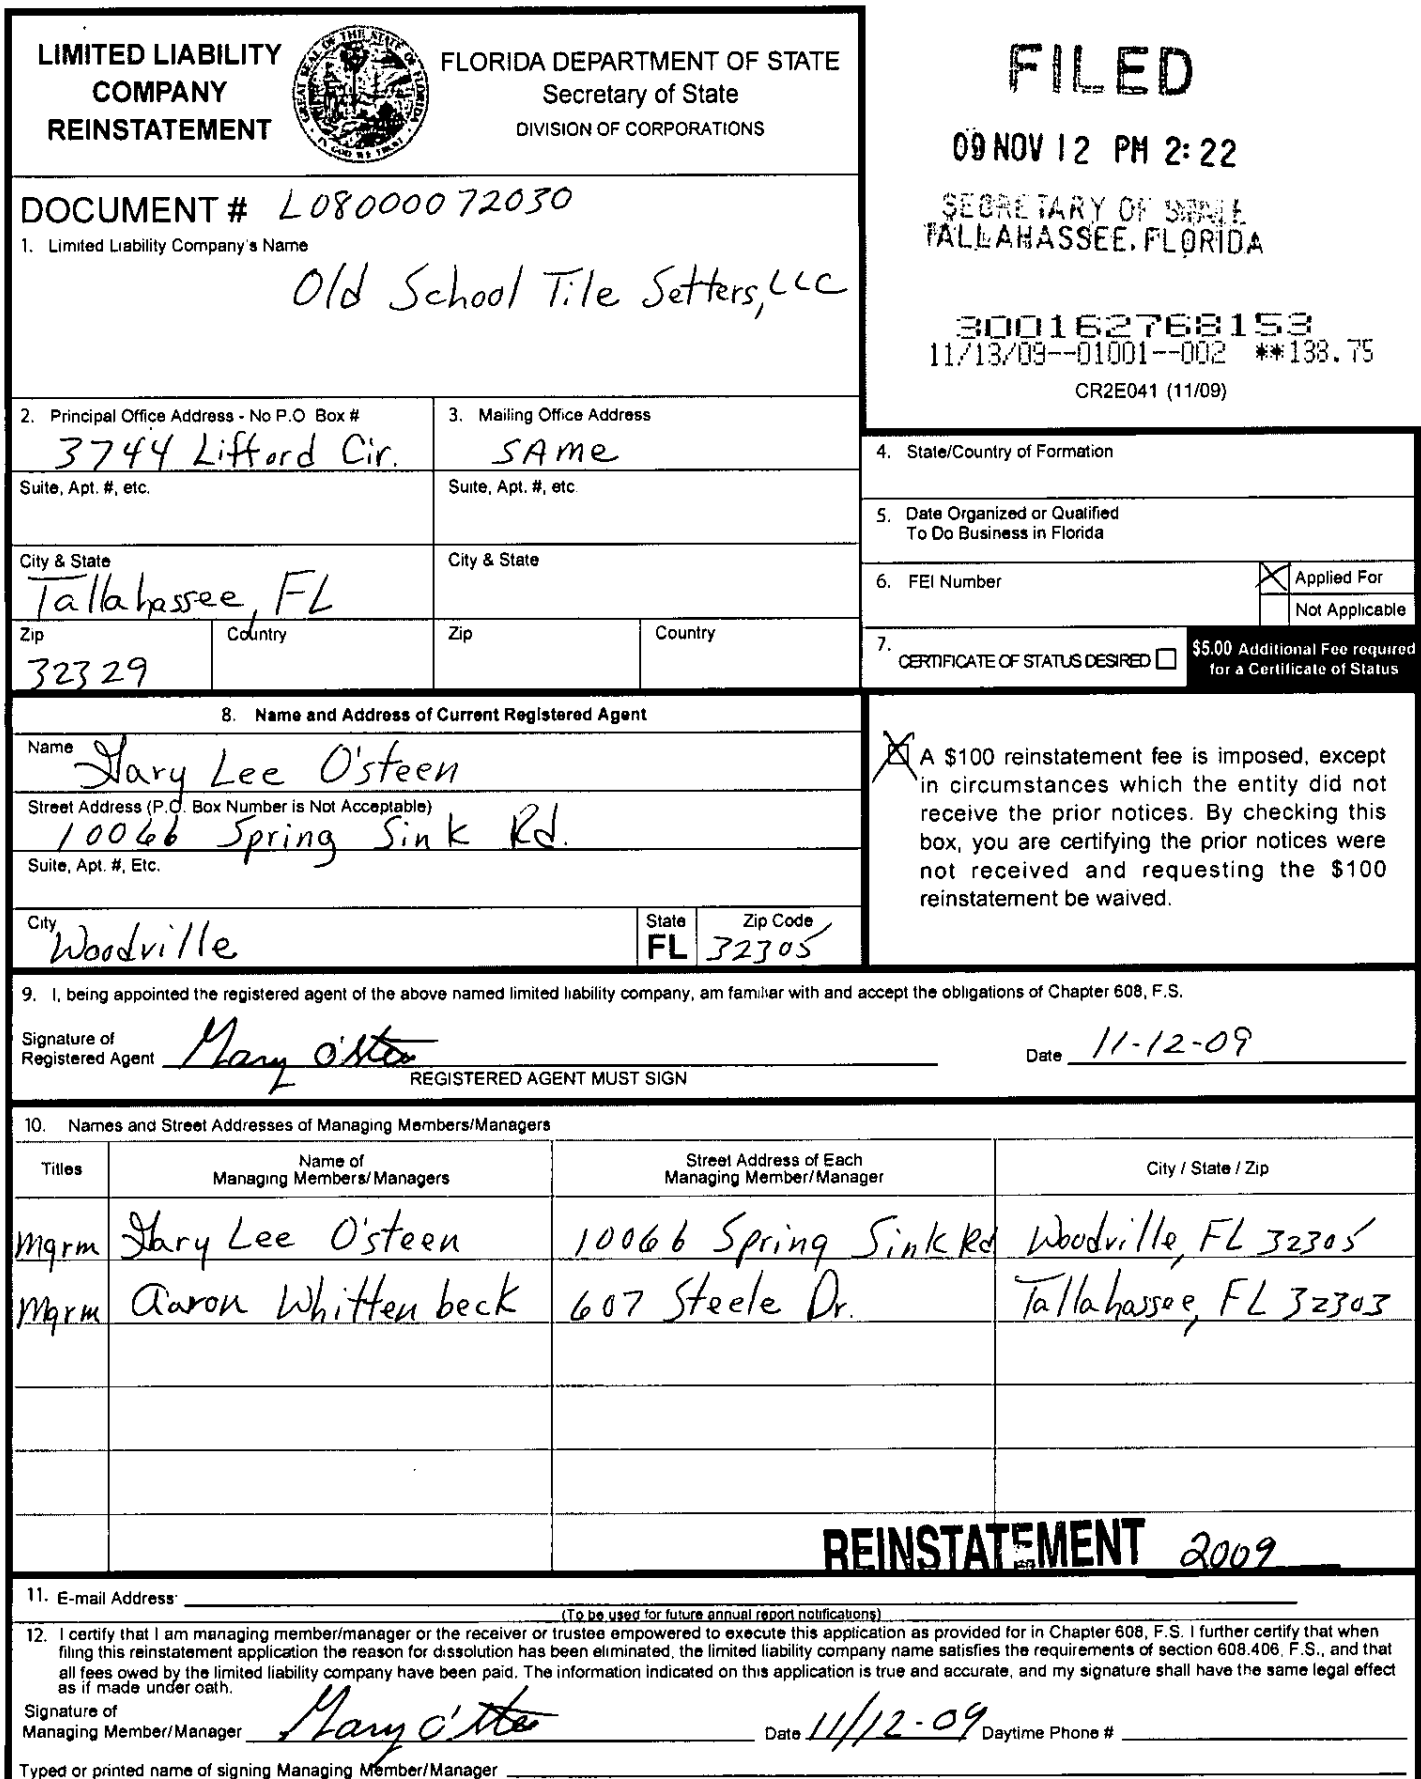 LIMITED LIABILITY
COMPANY
REINSTATEMENT
GREAT SEAL OF THE STATE OF FLORIDA
IN GOD WE TRUST
FLORIDA DEPARTMENT OF STATE
Secretary of State
DIVISION OF CORPORATIONS
FILED
09 NOV 12 PM 2:22
SECRETARY OF STATE
TALLAHASSEE, FLORIDA
300162768153
11/13/09--01001--002 **138.75
CR2E041 (11/09)
DOCUMENT # L08000072030
1. Limited Liability Company's Name
Old School Tile Setters, LLC
2. Principal Office Address - No P.O Box #
3744 Lifford Cir.
3. Mailing Office Address
SAme
Suite, Apt. #, etc.
Suite, Apt. #, etc
City & State
Tallahassee, FL
City & State
Zip
32329
Country
Zip
Country
4. State/Country of Formation
5. Date Organized or Qualified
To Do Business in Florida
6. FEI Number
X Applied For
Not Applicable
7. CERTIFICATE OF STATUS DESIRED
$5.00 Additional Fee required
for a Certificate of Status
8. Name and Address of Current Registered Agent
Name Gary Lee O'steen
Street Address (P.O. Box Number is Not Acceptable)
10066 Spring Sink Rd.
Suite, Apt. #, Etc.
City Woodville
State
FL
Zip Code
32305
X A $100 reinstatement fee is imposed, except
in circumstances which the entity did not
receive the prior notices. By checking this
box, you are certifying the prior notices were
not received and requesting the $100
reinstatement be waived.
9. I, being appointed the registered agent of the above named limited liability company, am familiar with and accept the obligations of Chapter 608, F.S.
Signature of
Registered Agent Gary O'Steen
Date 11-12-09
REGISTERED AGENT MUST SIGN
10. Names and Street Addresses of Managing Members/Managers
Titles
Name of
Managing Members/Managers
Street Address of Each
Managing Member/Manager
City / State / Zip
Mgrm Gary Lee O'steen 10066 Spring Sink Rd Woodville, FL 32305
Mgrm Aaron Whittenbeck 607 Steele Dr. Tallahassee, FL 32303
REINSTATEMENT 2009
11. E-mail Address:
(To be used for future annual report notifications)
12. I certify that I am managing member/manager or the receiver or trustee empowered to execute this application as provided for in Chapter 608, F.S. I further certify that when
filing this reinstatement application the reason for dissolution has been eliminated, the limited liability company name satisfies the requirements of section 608.406, F.S., and that
all fees owed by the limited liability company have been paid. The information indicated on this application is true and accurate, and my signature shall have the same legal effect
as if made under oath.
Signature of
Managing Member/Manager Gary O'Steen
Date 11/12-09 Daytime Phone #
Typed or printed name of signing Managing Member/Manager